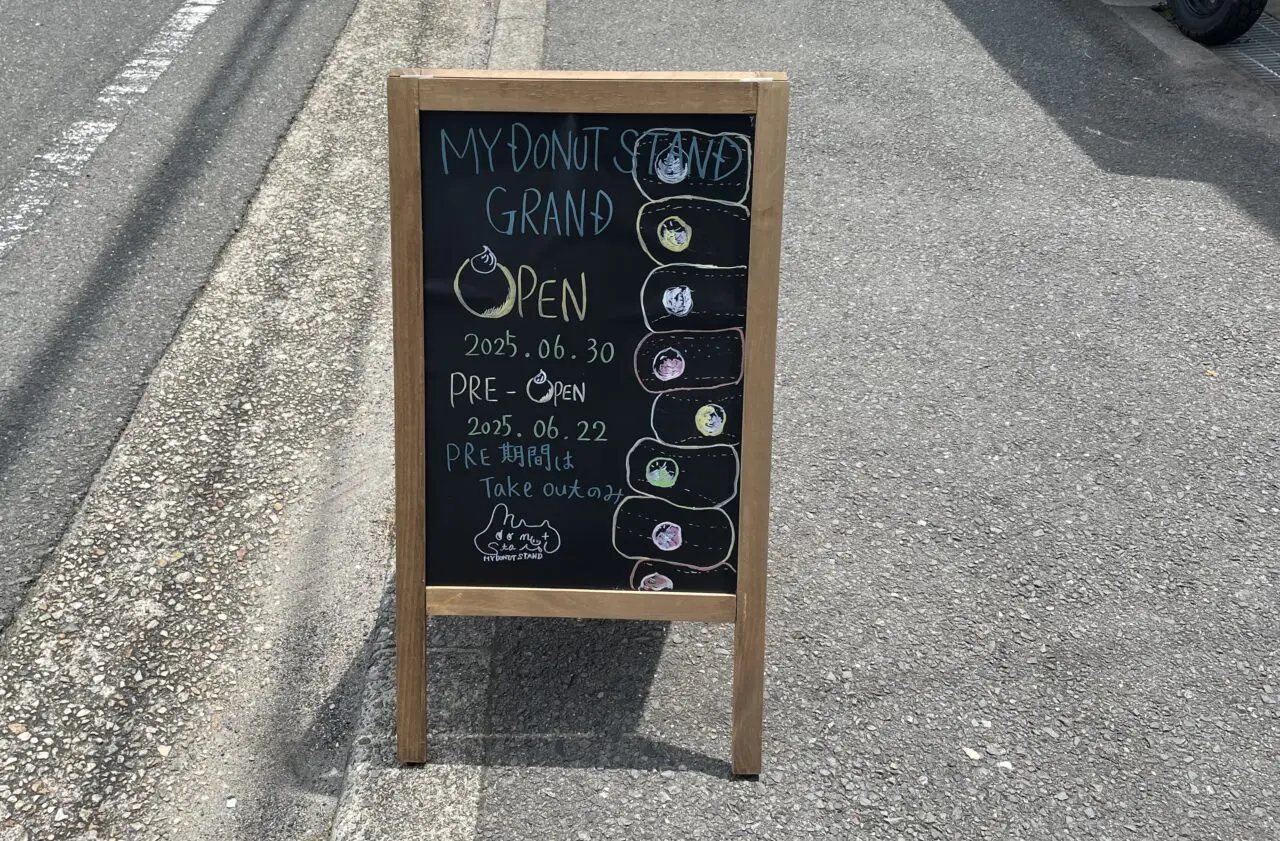 MY DONUT STAND
GRAND
OPEN
2025.06.30
PRE-OPEN
2025.06.22
PRE期間は
Take outのみ
My
donut
Stand
MY DONUT STAND